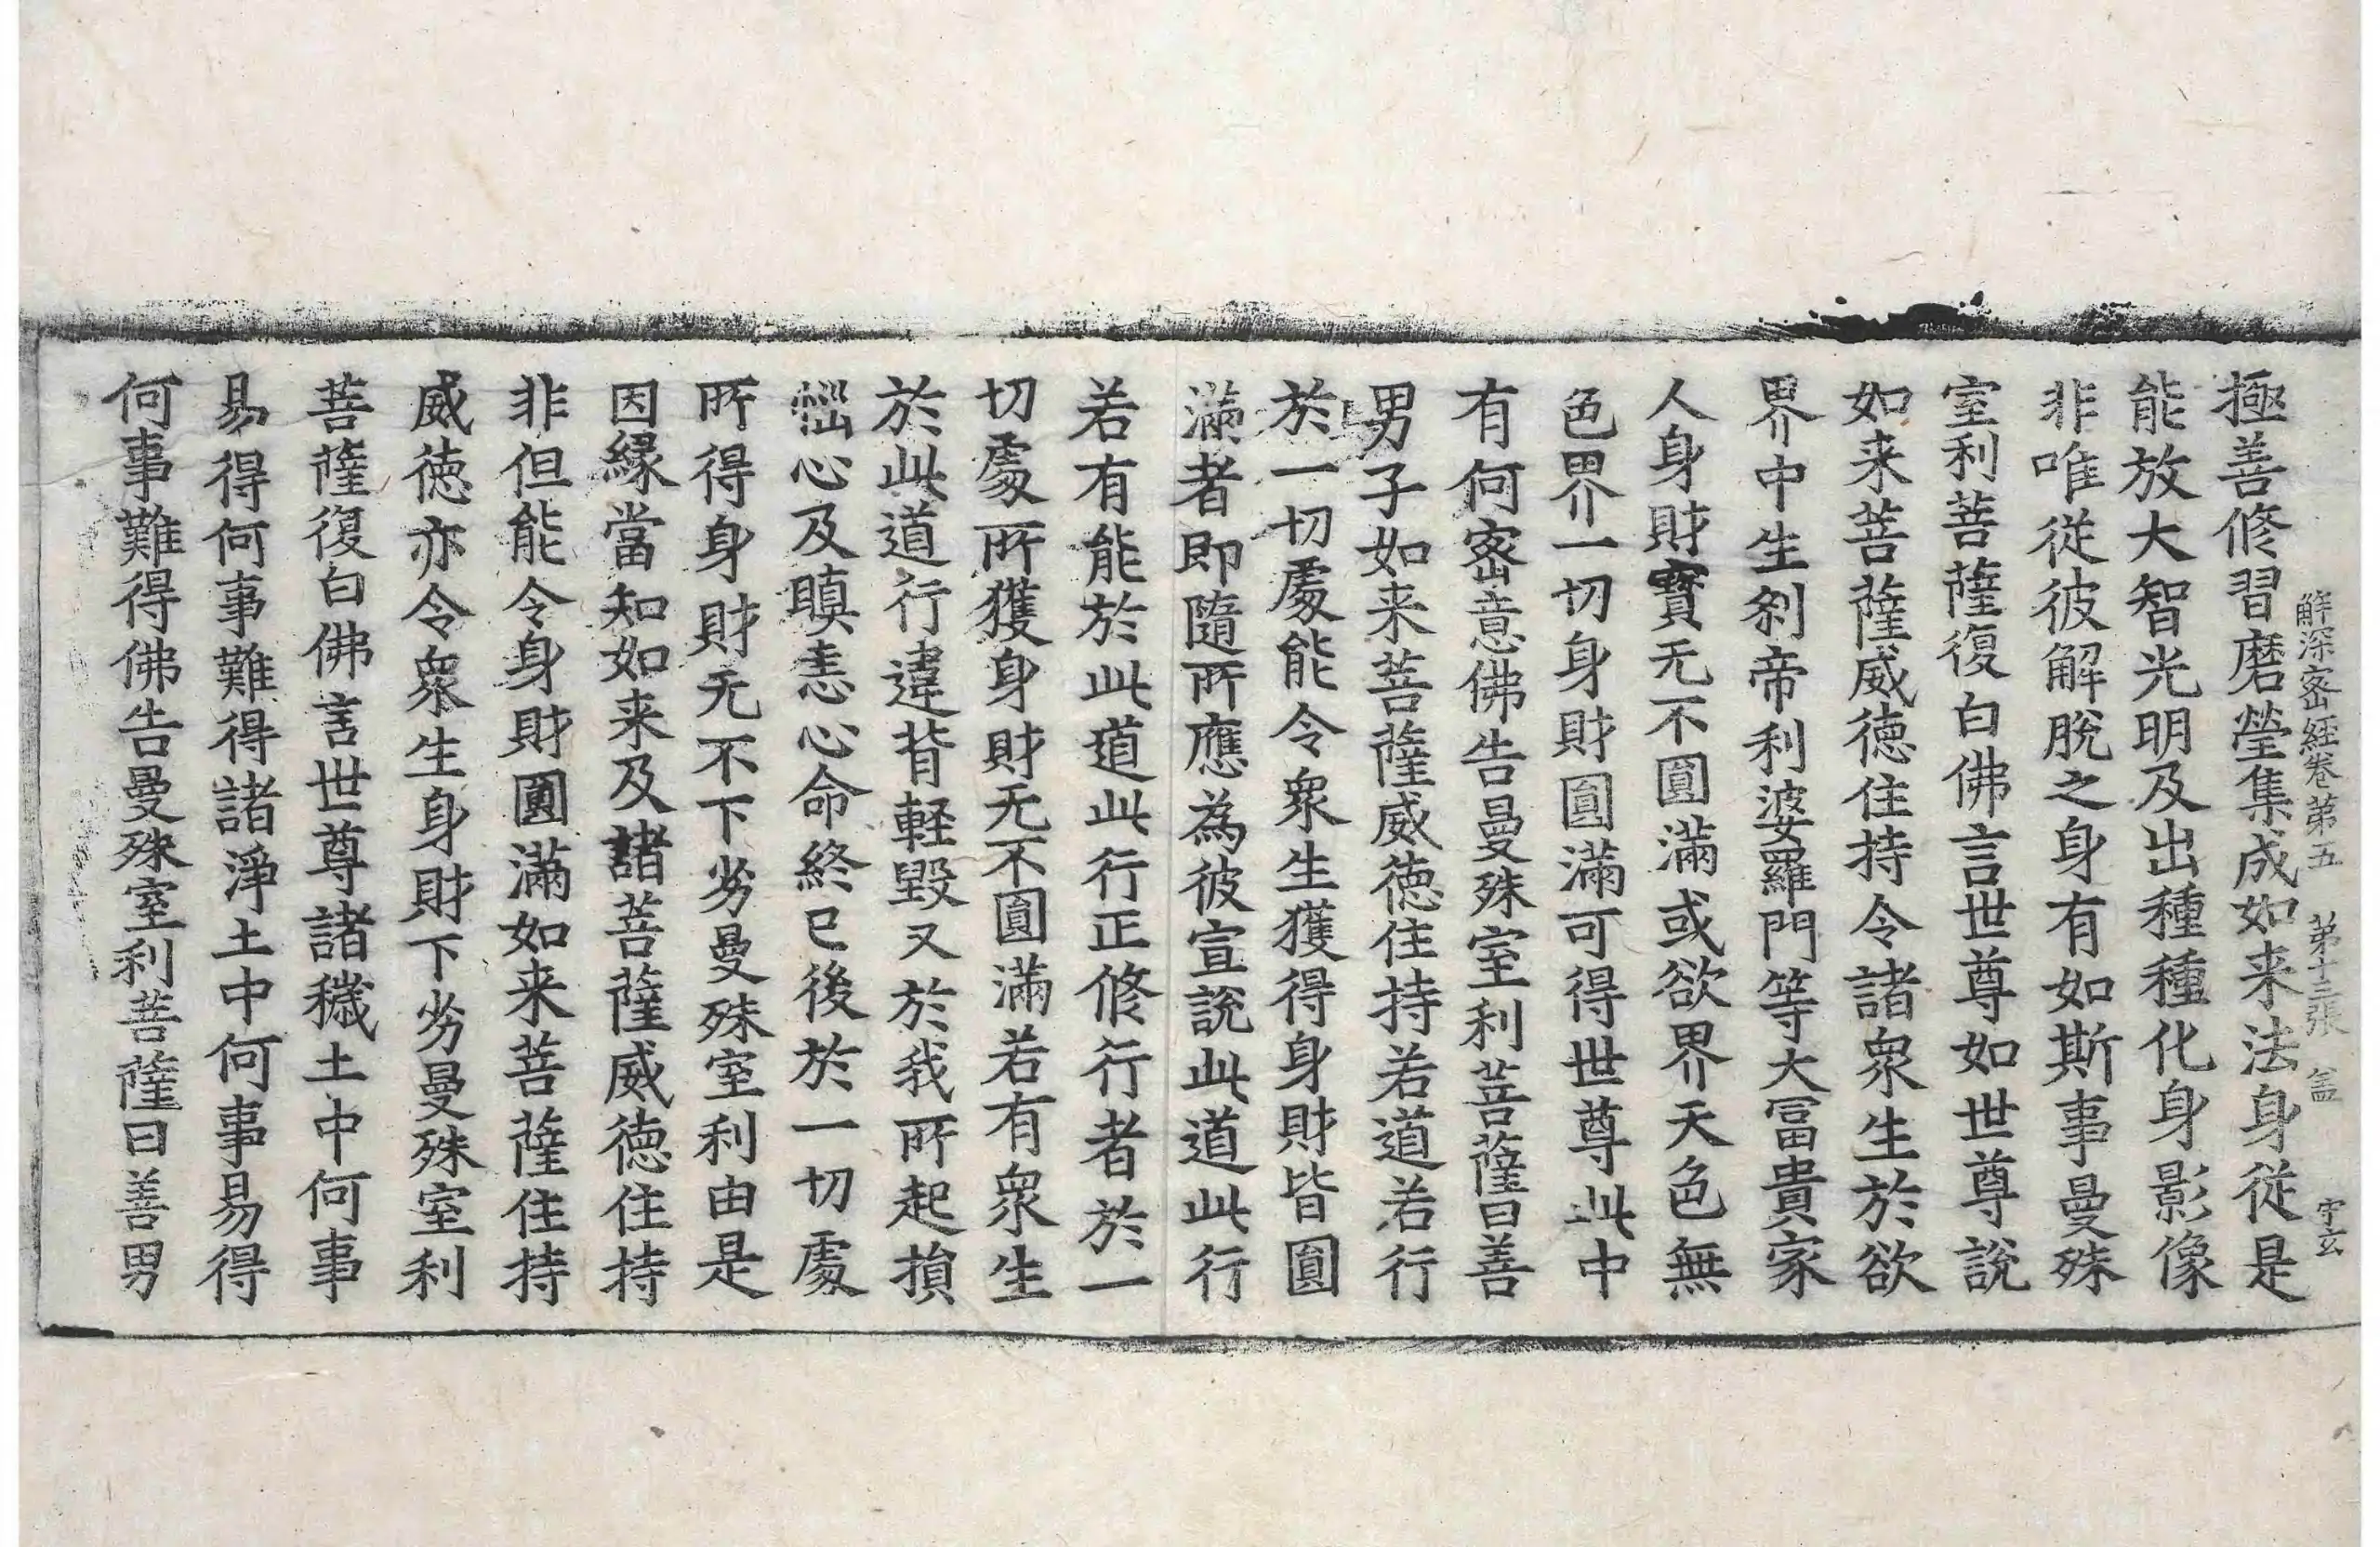 解深密經卷第五 第十三張 盖 宇玄
極善修習磨瑩集成如来法身従是
能放大智光明及出種種化身影像
非唯従彼解脫之身有如斯事曼殊
室利菩薩復白佛言世尊如世尊說
如来菩薩威德住持令諸衆生於欲
界中生刹帝利婆羅門等大冨貴家
人身財寶无不圓滿或欲界天色無
色界一切身財圓滿可得世尊此中
有何密意佛告曼殊室利菩薩曰善
男子如来菩薩威德住持若道若行
於一切處能令衆生獲得身財皆圓
滿者即隨所應為彼宣說此道此行
若有能於此道此行正修行者於一
切處所獲身財无不圓滿若有衆生
於此道行違背軽毀又於我所起損
惱心及瞋恚心命終已後於一切處
所得身財无不下劣曼殊室利由是
因緣當知如来及諸菩薩威德住持
非但能令身財圓滿如来菩薩住持
威德亦令衆生身財下劣曼殊室利
菩薩復白佛言世尊諸穢土中何事
易得何事難得諸淨土中何事易得
何事難得佛告曼殊室利菩薩曰善男